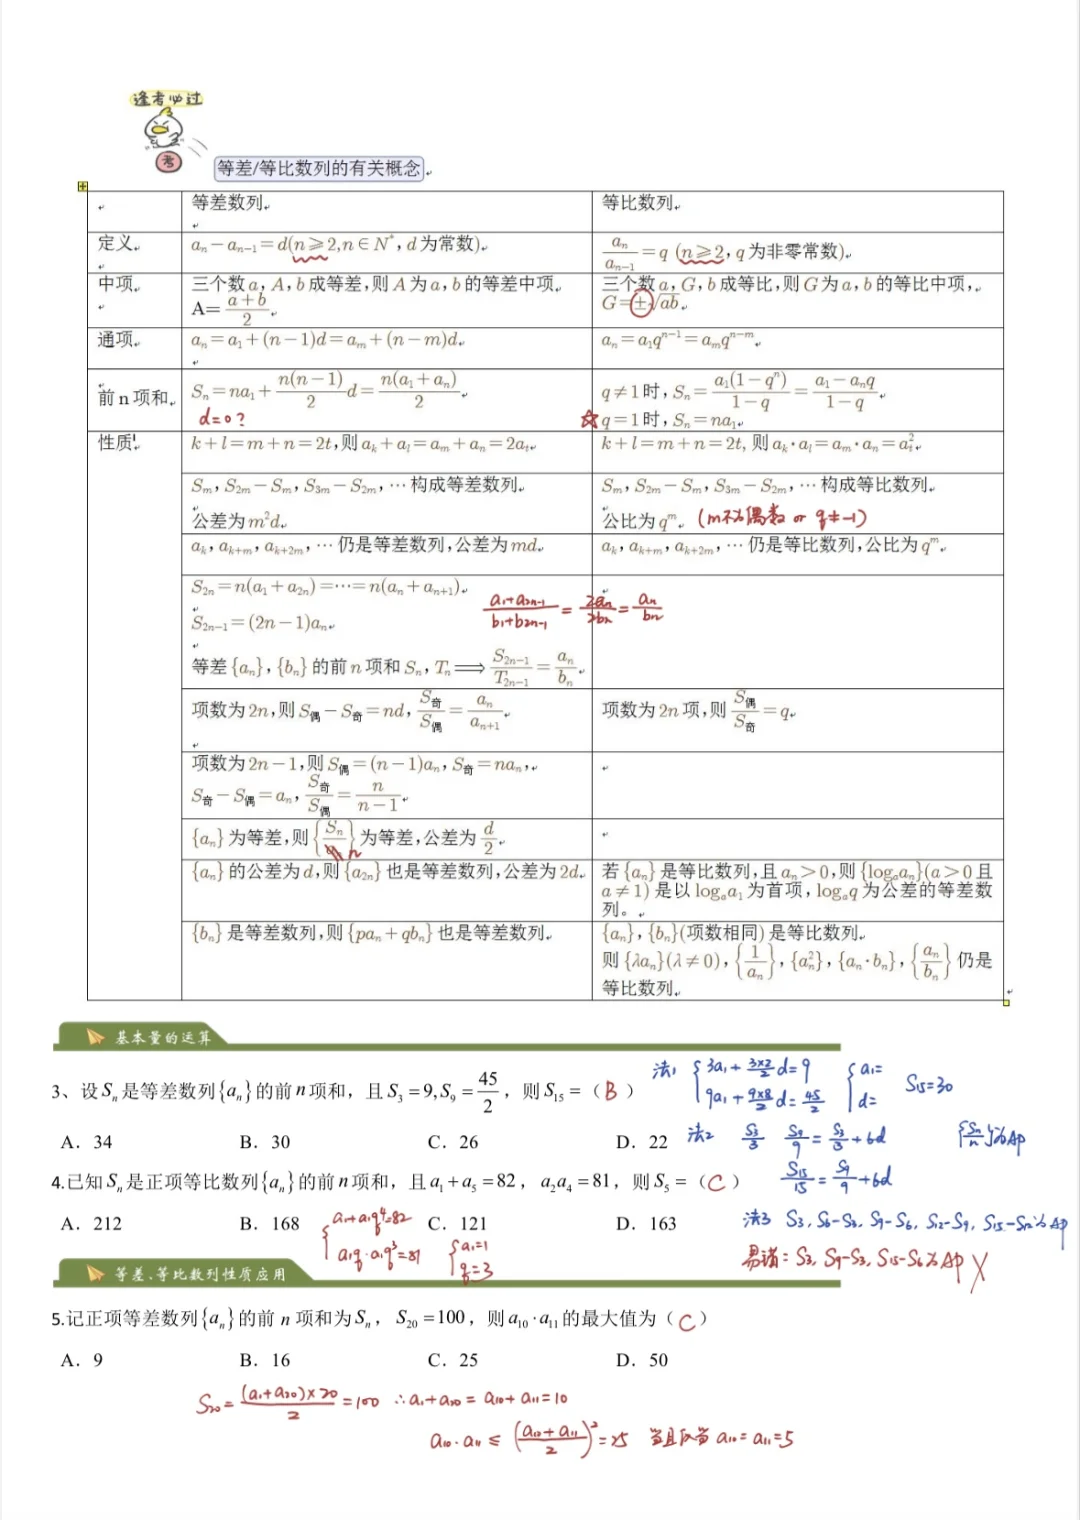 逢考必过
考
等差/等比数列的有关概念
等差数列 等比数列
定义 aₙ－aₙ₋₁＝d(n≥2,n∈N*，d为常数) aₙ/aₙ₋₁＝q (n≥2，q为非零常数)
中项 三个数a，A，b成等差,则A为a，b的等差中项 A=(a+b)/2 三个数a，G，b成等比,则G为a，b的等比中项，G＝±√ab
通项 aₙ＝a₁＋(n－1)d＝aₘ＋(n－m)d aₙ＝a₁qⁿ⁻¹＝aₘqⁿ⁻ᵐ
前n项和 Sₙ＝na₁＋n(n－1)/2 d＝n(a₁＋aₙ)/2 q≠1时，Sₙ＝a₁(1－qⁿ)/(1－q)＝(a₁－aₙq)/(1－q)
d=0? ☆ q＝1时，Sₙ＝na₁
性质 k＋l＝m＋n＝2t,则aₖ＋aₗ＝aₘ＋aₙ＝2aₜ k＋l＝m＋n＝2t, 则aₖ·aₗ＝aₘ·aₙ＝aₜ²
Sₘ，S₂ₘ－Sₘ，S₃ₘ－S₂ₘ，…构成等差数列 Sₘ，S₂ₘ－Sₘ，S₃ₘ－S₂ₘ，…构成等比数列
公差为m²d 公比为qᵐ (m不为偶数 or q≠-1)
aₖ，aₖ₊ₘ，aₖ₊₂ₘ，…仍是等差数列,公差为md aₖ，aₖ₊ₘ，aₖ₊₂ₘ，…仍是等比数列,公比为qᵐ
S₂ₙ＝n(a₁＋a₂ₙ)＝…＝n(aₙ＋aₙ₊₁)
S₂ₙ₋₁＝(2n－1)aₙ (a₁+a₂ₙ₋₁)/(b₁+b₂ₙ₋₁) = 2aₙ/2bₙ = aₙ/bₙ
等差{aₙ}，{bₙ}的前n项和Sₙ，Tₙ⟹S₂ₙ₋₁/T₂ₙ₋₁＝aₙ/bₙ
项数为2n,则S偶－S奇＝nd，S奇/S偶＝aₙ/aₙ₊₁ 项数为2n项,则S偶/S奇＝q
项数为2n－1,则S偶＝(n－1)aₙ，S奇＝naₙ，
S奇－S偶＝aₙ，S奇/S偶＝n/(n－1)
{aₙ}为等差,则{Sₙ/n}为等差,公差为d/2
{aₙ}的公差为d,则{a₂ₙ}也是等差数列,公差为2d 若{aₙ}是等比数列,且aₙ＞0,则{logₐaₙ}(a＞0且
a≠1)是以logₐa₁为首项,logₐq为公差的等差数
列。
{bₙ}是等差数列,则{paₙ＋qbₙ}也是等差数列 {aₙ}，{bₙ}(项数相同)是等比数列
则{λaₙ}(λ≠0)，{1/aₙ}，{aₙ²}，{aₙ·bₙ}，{aₙ/bₙ}仍是
等比数列
基本量的运算
3、设Sₙ是等差数列{aₙ}的前n项和，且S₃=9,S₉=45/2，则S₁₅=（ B ）
法1 {3a₁+(3×2/2)d=9 {a₁= S₁₅=30
9a₁+(9×8/2)d=45/2 d=
A．34 B．30 C．26 D．22
法2 S₃/3 S₉/9=S₃/3+6d {Sₙ/n}为AP
S₁₅/15=S₉/9+6d
4.已知Sₙ是正项等比数列{aₙ}的前n项和，且a₁+a₅=82，a₂a₄=81，则S₅=（ C ）
A．212 B．168 C．121 D．163
{a₁+a₁q⁴=82
a₁q·a₁q³=81 {a₁=1
q=3
法3 S₃, S₆-S₃, S₉-S₆, S₁₂-S₉, S₁₅-S₁₂为AP
易错: S₃, S₉-S₃, S₁₅-S₆为AP ×
等差、等比数列性质应用
5.记正项等差数列{aₙ}的前 n 项和为Sₙ，S₂₀=100，则a₁₀·a₁₁的最大值为（ C ）
A．9 B．16 C．25 D．50
S₂₀=(a₁+a₂₀)×20/2=100 ∴a₁+a₂₀=a₁₀+a₁₁=10
a₁₀·a₁₁≤((a₁₀+a₁₁)/2)²=25 当且仅当a₁₀=a₁₁=5